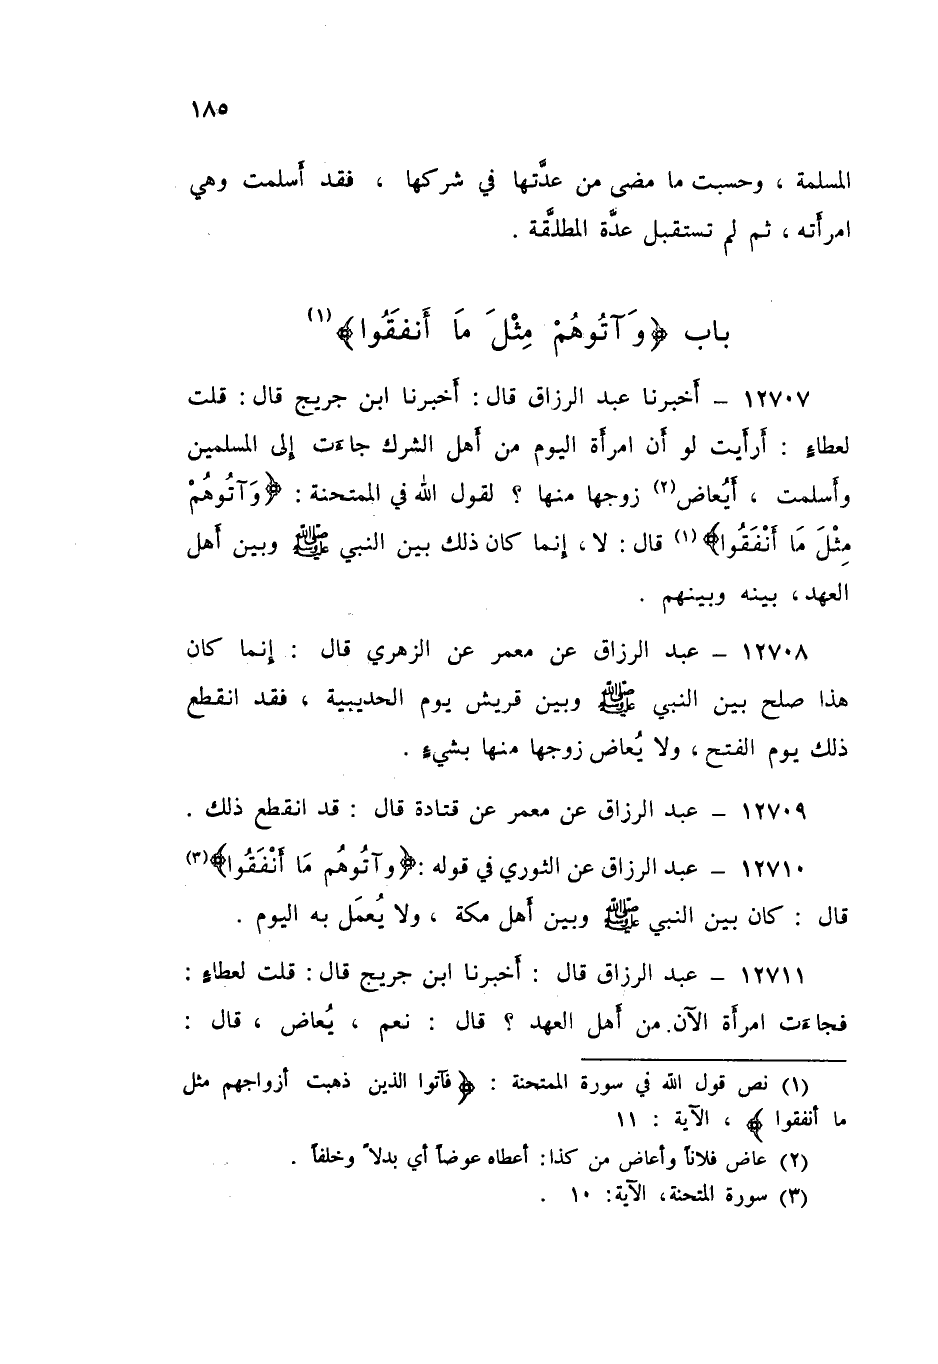 ١٨٥
المسلمة ، وحسبت ما مضى من عدَّتها في شركها ، فقد أَسلمت وهي
امرأَته ، ثم لم تستقبل عدَّة المطلَّقة .
باب ﴿وَآتُوهُمْ مِثْلَ مَا أَنفَقُوا﴾(١)
١٢٧٠٧ – أَخبرنا عبد الرزاق قال : أَخبرنا ابن جريج قال : قلت
لعطاءٍ : أَرأَيت لو أَن امرأَة اليوم من أَهل الشرك جاءَت إِلى المسلمين
وأَسلمت ، أَيُعاض(٢) زوجها منها ؟ لقول الله في الممتحنة : ﴿وَآتُوهُمْ
مِثْلَ مَا أَنْفَقُوا﴾(١) قال : لا ، إِنما كان ذلك بين النبي ﷺ وبين أَهل
العهد ، بينه وبينهم .
١٢٧٠٨ – عبد الرزاق عن معمر عن الزهري قال : إِنما كان
هذا صلح بين النبي ﷺ وبين قريش يوم الحديبية ، فقد انقطع
ذلك يوم الفتح ، ولا يُعاض زوجها منها بشيءٍ .
١٢٧٠٩ – عبد الرزاق عن معمر عن قتادة قال : قد انقطع ذلك .
١٢٧١٠ – عبد الرزاق عن الثوري في قوله : ﴿وآتُوهُم مَا أَنْفَقُوا﴾(٣)
قال : كان بين النبي ﷺ وبين أَهل مكة ، ولا يُعمَل به اليوم .
١٢٧١١ – عبد الرزاق قال : أَخبرنا ابن جريج قال : قلت لعطاءٍ :
فجاءَت امرأَة الآن من أَهل العهد ؟ قال : نعم ، يُعاض ، قال :
(١) نص قول الله في سورة الممتحنة : ﴿فآتوا الذين ذهبت أزواجهم مثل
ما أنفقوا ﴾ ، الآية : ١١
(٢) عاض فلاناً وأعاض من كذا : أعطاه عوضاً أي بدلاً وخلفاً .
(٣) سورة المتحنة، الآية : ١٠ .